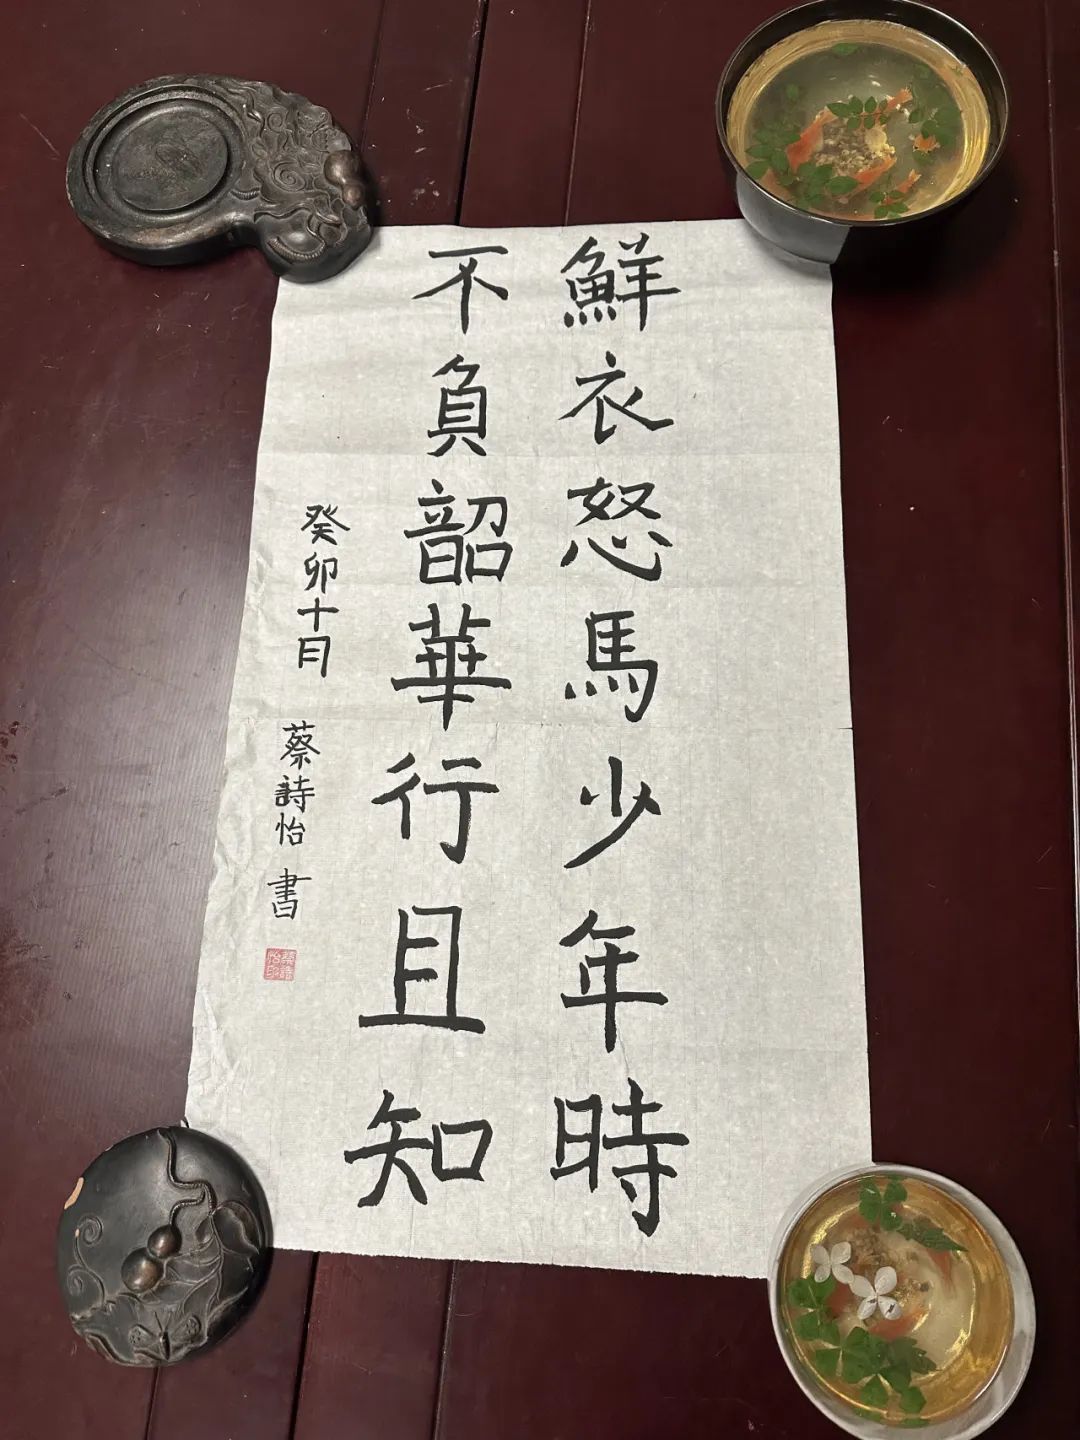 鮮衣怒馬少年時
不負韶華行且知
癸卯十月 蔡詩怡 書
蔡詩怡印